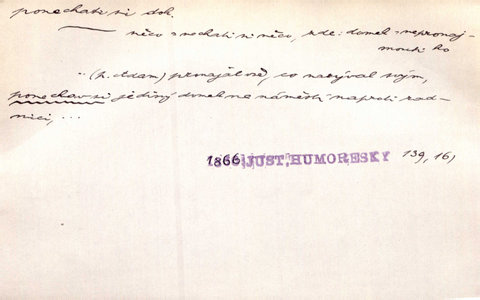 ponechati si dok.
něco nechati si něco, zde: domek nepronaj-
mouti ho
..(p. Adam) pronajal vše, co nazýval svým,
ponechav si jediný domek na náměstí naproti rad-
nici, ...
1866 JUST, HUMORESKY 139, 16)